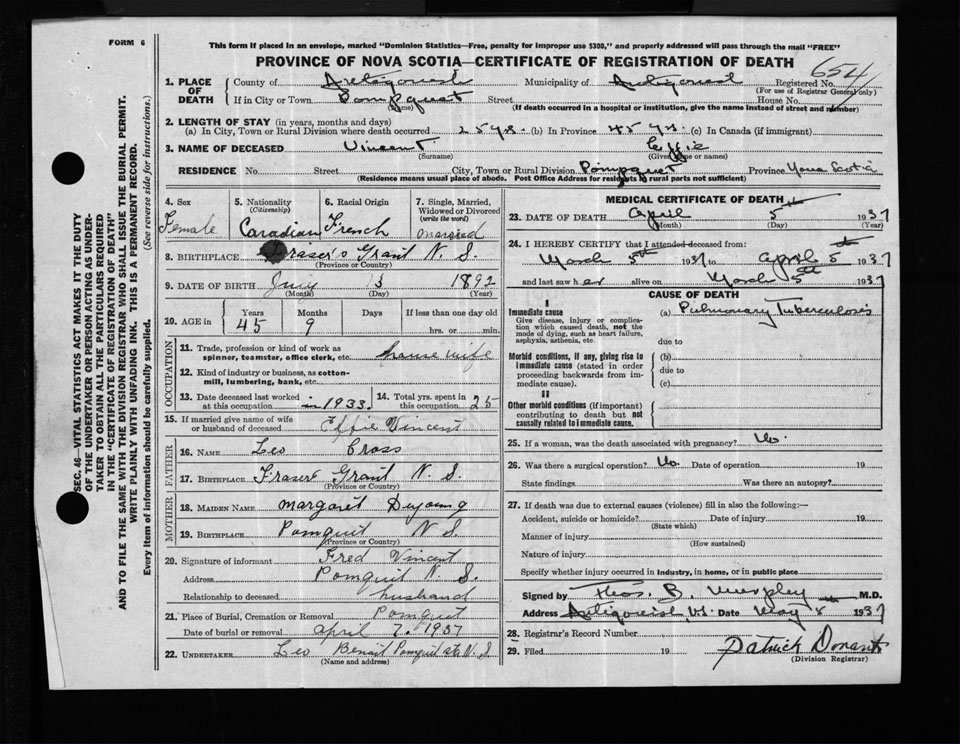 FORM 6
This form if placed in an envelope, marked "Dominion Statistics—Free, penalty for improper use $300," and properly addressed will pass through the mail "FREE"
PROVINCE OF NOVA SCOTIA—CERTIFICATE OF REGISTRATION OF DEATH
654
1. PLACE OF DEATH County of Antigonish Municipality of Antigonish Registered No.
(For use of Registrar General only)
If in City or Town Pomquet Street House No.
(Name) (If death occurred in a hospital or institution, give the name instead of street and number)
2. LENGTH OF STAY (in years, months and days)
(a) In City, Town or Rural Division where death occurred 25 yrs. (b) In Province 45 yrs. (c) In Canada (if immigrant)
3. NAME OF DECEASED Vincent Effie
(Surname) (Given name or names)
RESIDENCE No. Street City, Town or Rural Division Pomquet Province Nova Scotia
(Residence means usual place of abode. Post Office Address for residents in rural parts not sufficient)
4. Sex Female
5. Nationality (Citizenship) Canadian
6. Racial Origin French
7. Single, Married, Widowed or Divorced (write the word) married
8. BIRTHPLACE Fraser's Grant N. S.
(Province or Country)
9. DATE OF BIRTH 3 1892
(Month) (Day) (Year)
10. AGE in Years 45 Months 9 Days If less than one day hrs. or min.
OCCUPATION
11. Trade, profession or kind of work as spinner, teamster, office clerk, etc. house wife
12. Kind of industry or business, as cotton-mill, lumbering, bank, etc.
13. Date deceased last worked at this occupation in 1933.
14. Total yrs. spent in this occupation 25
15. If married give name of wife or husband of deceased Effie Vincent
FATHER
16. NAME Leo Cross
17. BIRTHPLACE Fraser Grant N. S.
(Province or Country)
MOTHER
18. MAIDEN NAME Margaret Deyoung
19. BIRTHPLACE Pomquit N S.
(Province or Country)
20. Signature of informant Fred Vincent
Address Pomquit N. S.
Relationship to deceased husband
21. Place of Burial, Cremation or Removal Pomquit
Date of burial or removal April 7. 1937
22. UNDERTAKER Leo Benoit Pomquit N. S.
(Name and address)
MEDICAL CERTIFICATE OF DEATH
23. DATE OF DEATH April 5th 1937
(Month) (Day) (Year)
24. I HEREBY CERTIFY that I attended deceased from:
March 5th 1937 to April 5th 1937
and last saw her alive on March 5th 1937
CAUSE OF DEATH
I
Immediate cause
Give disease, injury or complication which caused death, not the mode of dying, such as heart failure, asphyxia, asthenia, etc.
(a) Pulmonary Tuberculosis
due to
Morbid conditions, if any, giving rise to immediate cause (stated in order proceeding backwards from immediate cause).
(b)
due to
(c)
II
Other morbid conditions (if important) contributing to death but not causally related to immediate cause.
25. If a woman, was the death associated with pregnancy? No.
26. Was there a surgical operation? No. Date of operation 19
State findings Was there an autopsy?
27. If death was due to external causes (violence) fill in also the following:—
Accident, suicide or homicide? Date of injury 19
(State which)
Manner of injury
(How sustained)
Nature of injury
Specify whether injury occurred in industry, in home, or in public place
Signed by Thos. B. Murphy M.D.
Address Antigonish, N.S. Date May 8 1937
28. Registrar's Record Number
29. Filed 19 Patrick
(Division Registrar)
SEC. 46—VITAL STATISTICS ACT MAKES IT THE DUTY
OF THE UNDERTAKER OR PERSON ACTING AS UNDER-
TAKER TO OBTAIN ALL THE PARTICULARS REQUIRED
IN THE "CERTIFICATE OF REGISTRATION OF DEATH"
AND TO FILE THE SAME WITH THE DIVISION REGISTRAR WHO SHALL ISSUE THE BURIAL PERMIT.
WRITE PLAINLY WITH UNFADING INK. THIS IS A PERMANENT RECORD.
Every item of information should be carefully supplied. (See reverse side for instructions.)